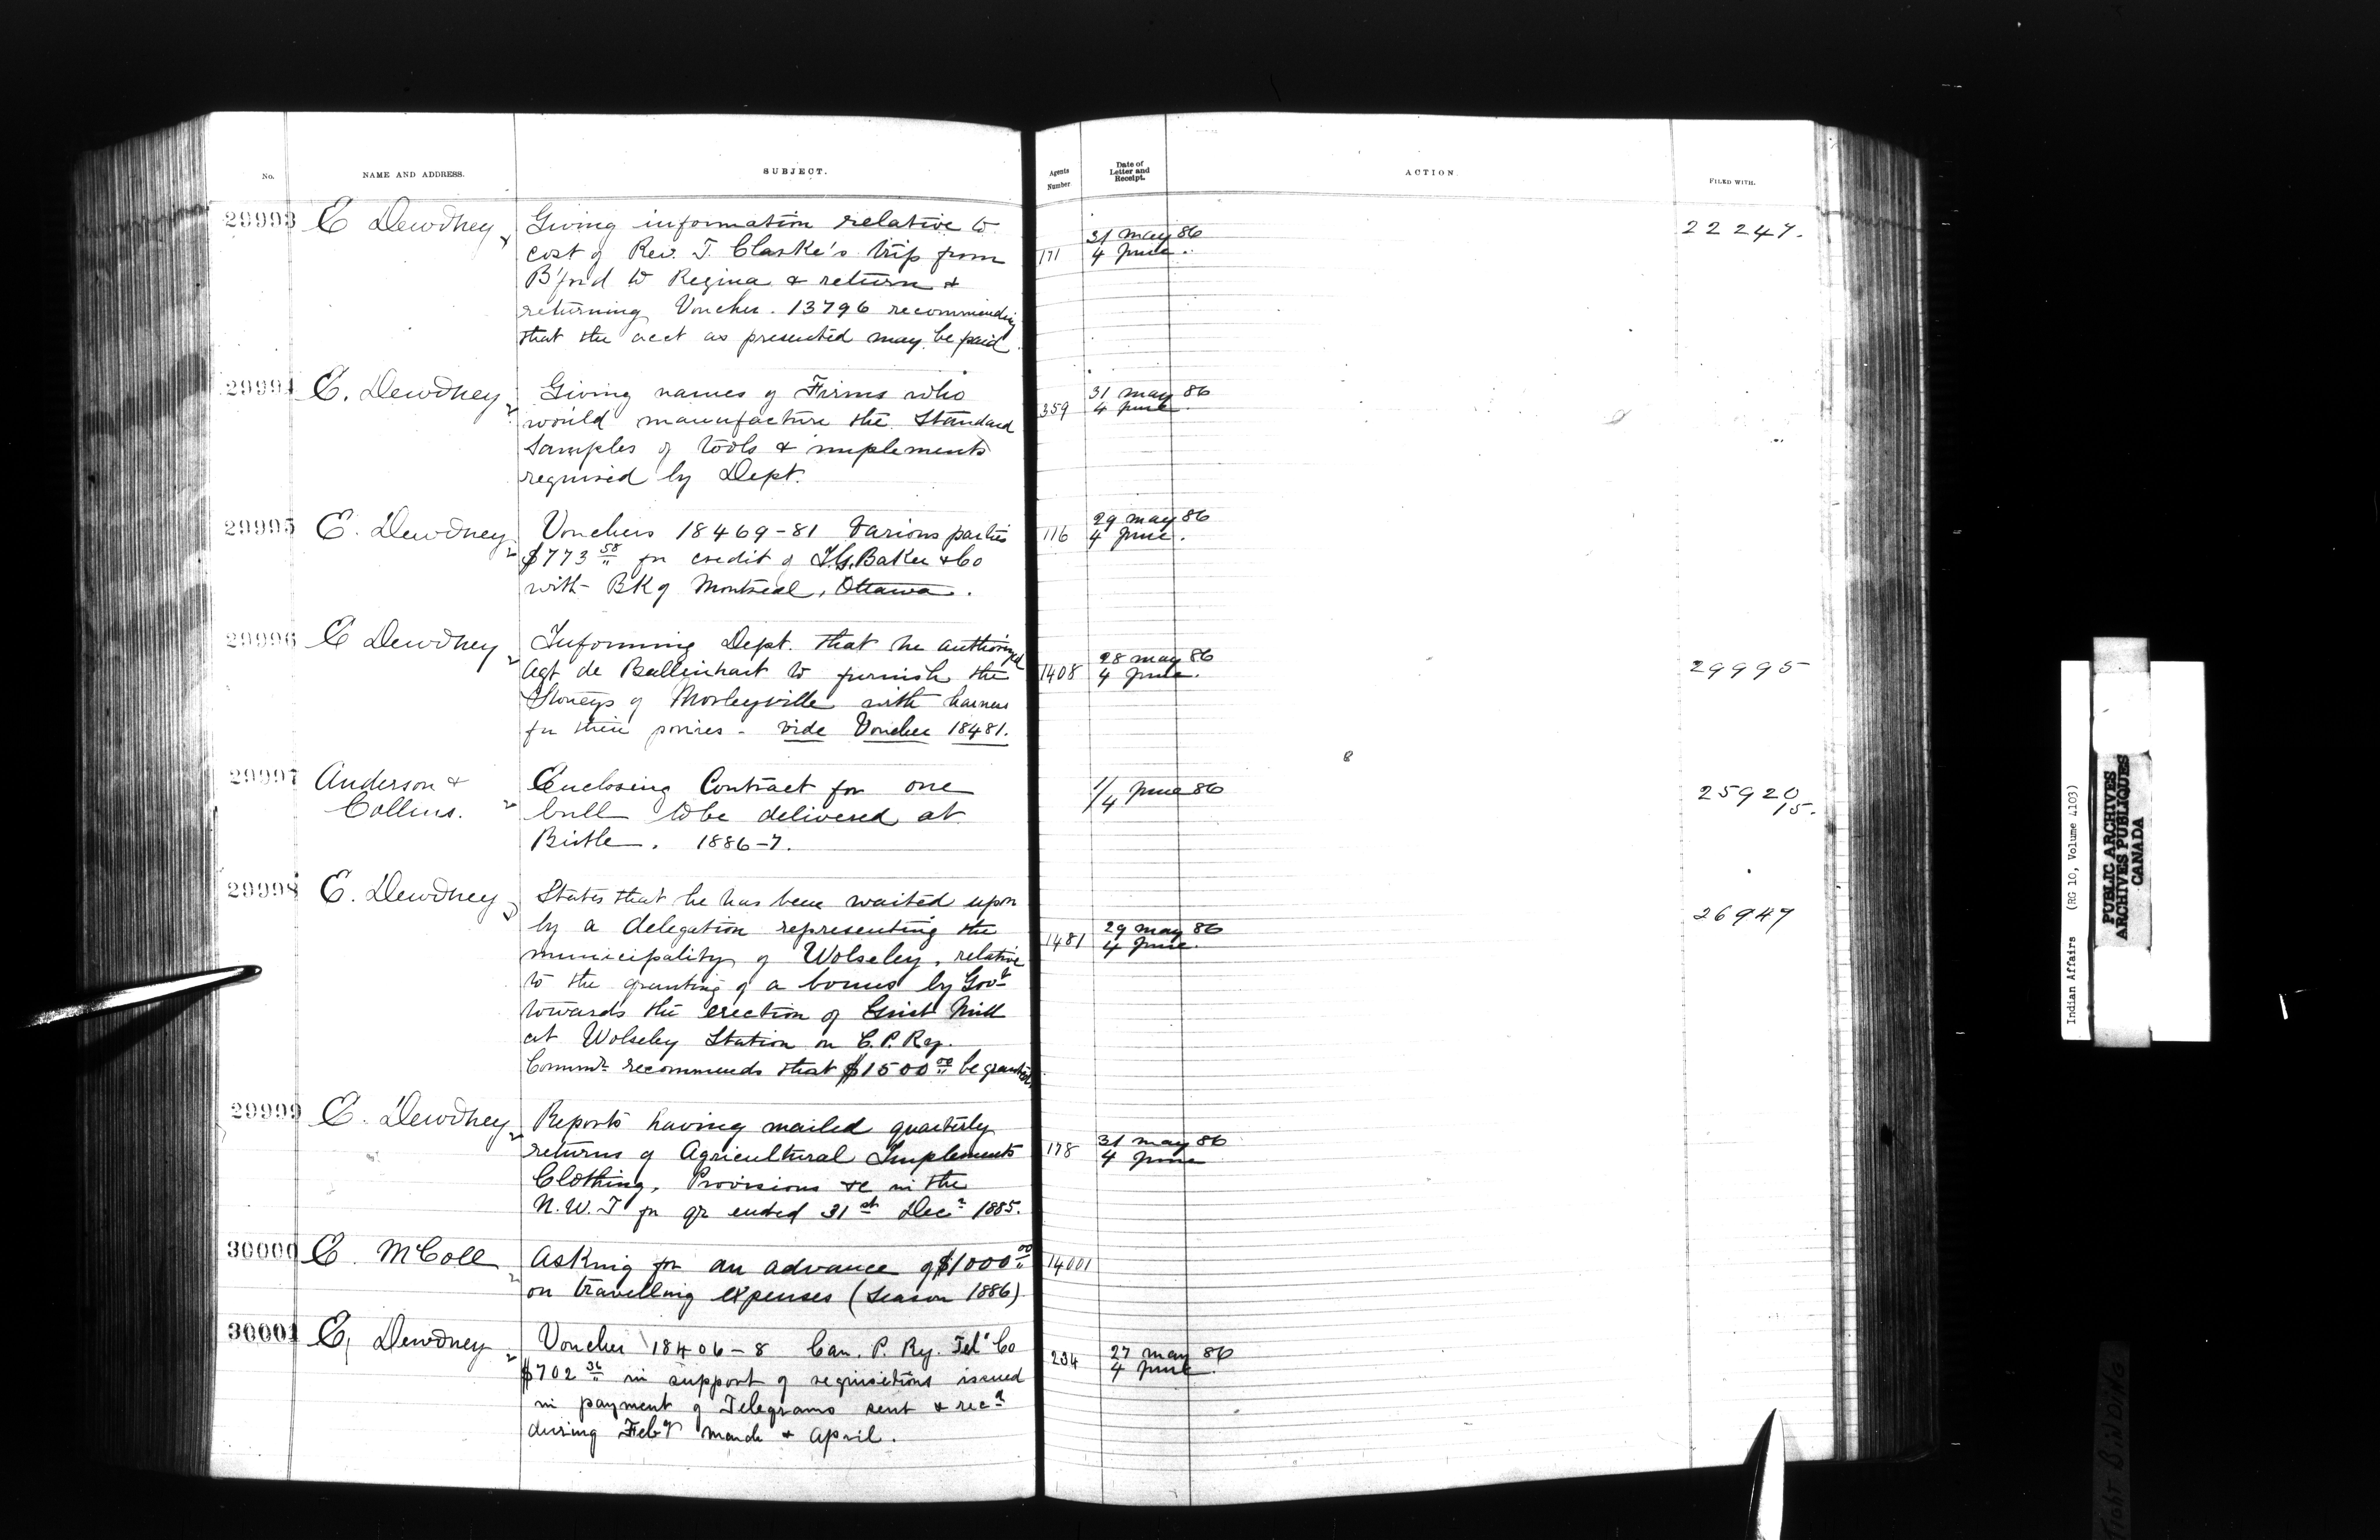 No. NAME AND ADDRESS. SUBJECT. Agents Number Date of Letter and Receipt. ACTION FILED WITH.
29993 E Dewdney Giving information relative to
cost of Rev. T. Clarke's trip from
B'ford to Regina & return &
returning Voucher. 13796 recommending
that the acct as presented may be paid
171 31 May 86
4 June.
22247.
29994 E. Dewdney Giving names of Firms who
would manufacture the Standard
Samples of tools & implements
required by Dept.
359 31 May 86
4 June
29995 E. Dewdney Vouchers 18469-81 Various parties
$773 58 for credit of I.G. Baker & Co
with BK of Montreal, Ottawa.
116 29 May 86
4 June.
29996 E Dewdney Informing Dept. that he authorized
Agt de Ballinhart to furnish the
Stoneys of Morleyville with harness
for their ponies - vide Voucher 18481.
1408 28 May 86
4 June.
29995
29997 Anderson &
Collins.
Enclosing Contract for one
bull to be delivered at
Birtle. 1886-7.
1/4 June 86
25920
15.
29998 E. Dewdney States that he has been waited upon
by a delegation representing the
municipality of Wolseley, relative
to the granting of a bonus by Govt
towards the erection of Grist Mill
at Wolseley Station on C.P. Ry.
Commr recommends that $1500 00 be granted
1481 29 May 86
4 June.
26947
29999 E. Dewdney Reports having mailed quarterly
returns of Agricultural Implements
Clothing, Provisions &c in the
N.W.T for qr ended 31st Decr 1885.
178 31 May 86
4 June
30000 E. McColl Asking for an advance of $1000 00
on travelling expenses (Season 1886)
14001
30001 E. Dewdney Voucher 18406-8 Can. P. Ry. Tel' Co
$702 36 in support of requisitions issued
in payment of Telegrams sent & recd
during Feby March & April.
234 27 May 86
4 June.
Indian Affairs (RG 10, Volume 4103)
PUBLIC ARCHIVES
ARCHIVES PUBLIQUES
CANADA
TIGHT BINDING